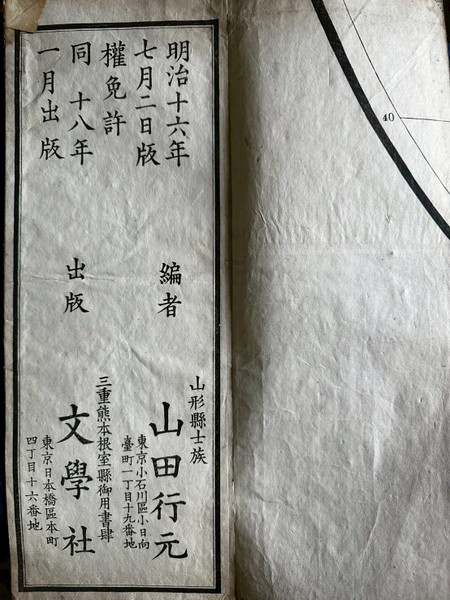 明治十六年
七月二日版
權免許
同 十八年
一月出版
編者
山形縣士族
山田行元
東京小石川區小日向
臺町一丁目十九番地
出版
三重熊本根室縣御用書肆
文學社
東京日本橋區本町
四丁目十六番地
40